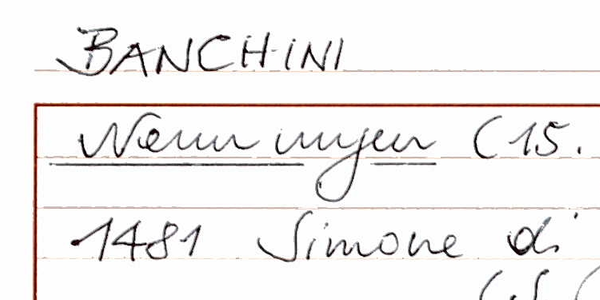 BANCHINI
Nennungen (15.
1481 Simone di